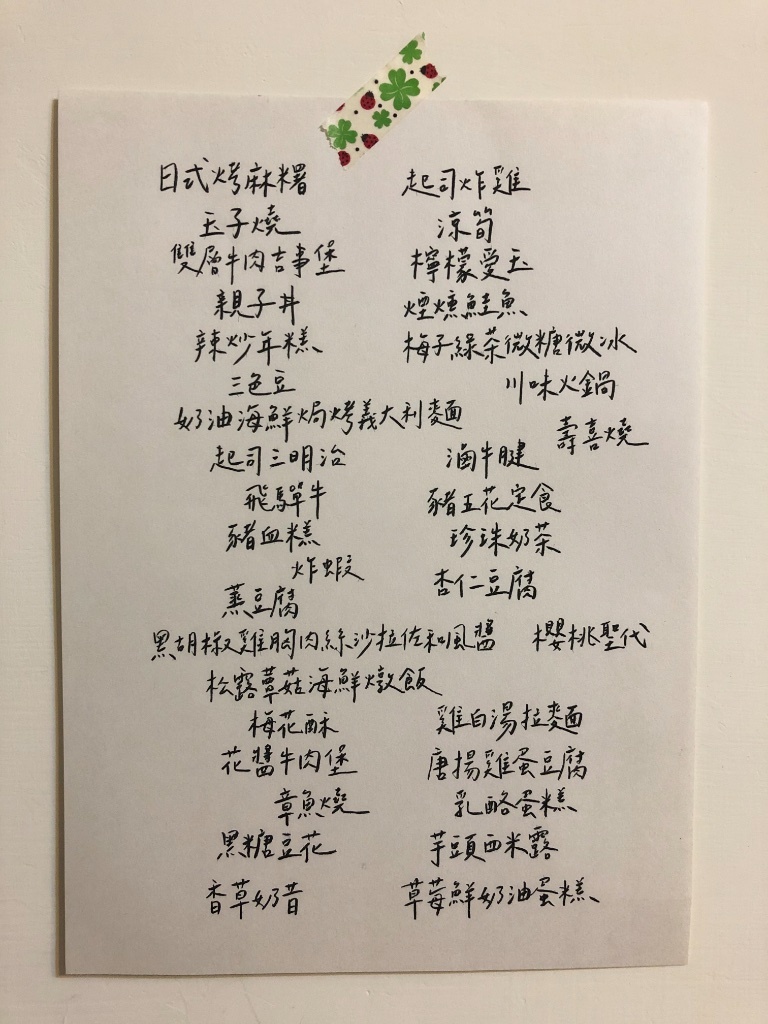 日式烤麻糬 起司炸雞
玉子燒 涼筍
雙層牛肉吉事堡 檸檬愛玉
親子丼 煙燻鮭魚
辣炒年糕 梅子綠茶微糖微冰
三色豆 川味火鍋
奶油海鮮焗烤義大利麵 壽喜燒
起司三明治 滷牛腱
飛驒牛 豬五花定食
豬血糕 珍珠奶茶
炸蝦 杏仁豆腐
蒸豆腐
黑胡椒雞胸肉絲沙拉佐和風醬 櫻桃聖代
松露蕈菇海鮮燉飯
梅花酥 雞白湯拉麵
花醬牛肉堡 唐揚雞蛋豆腐
章魚燒 乳酪蛋糕
黑糖豆花 芋頭西米露
香草奶昔 草莓鮮奶油蛋糕